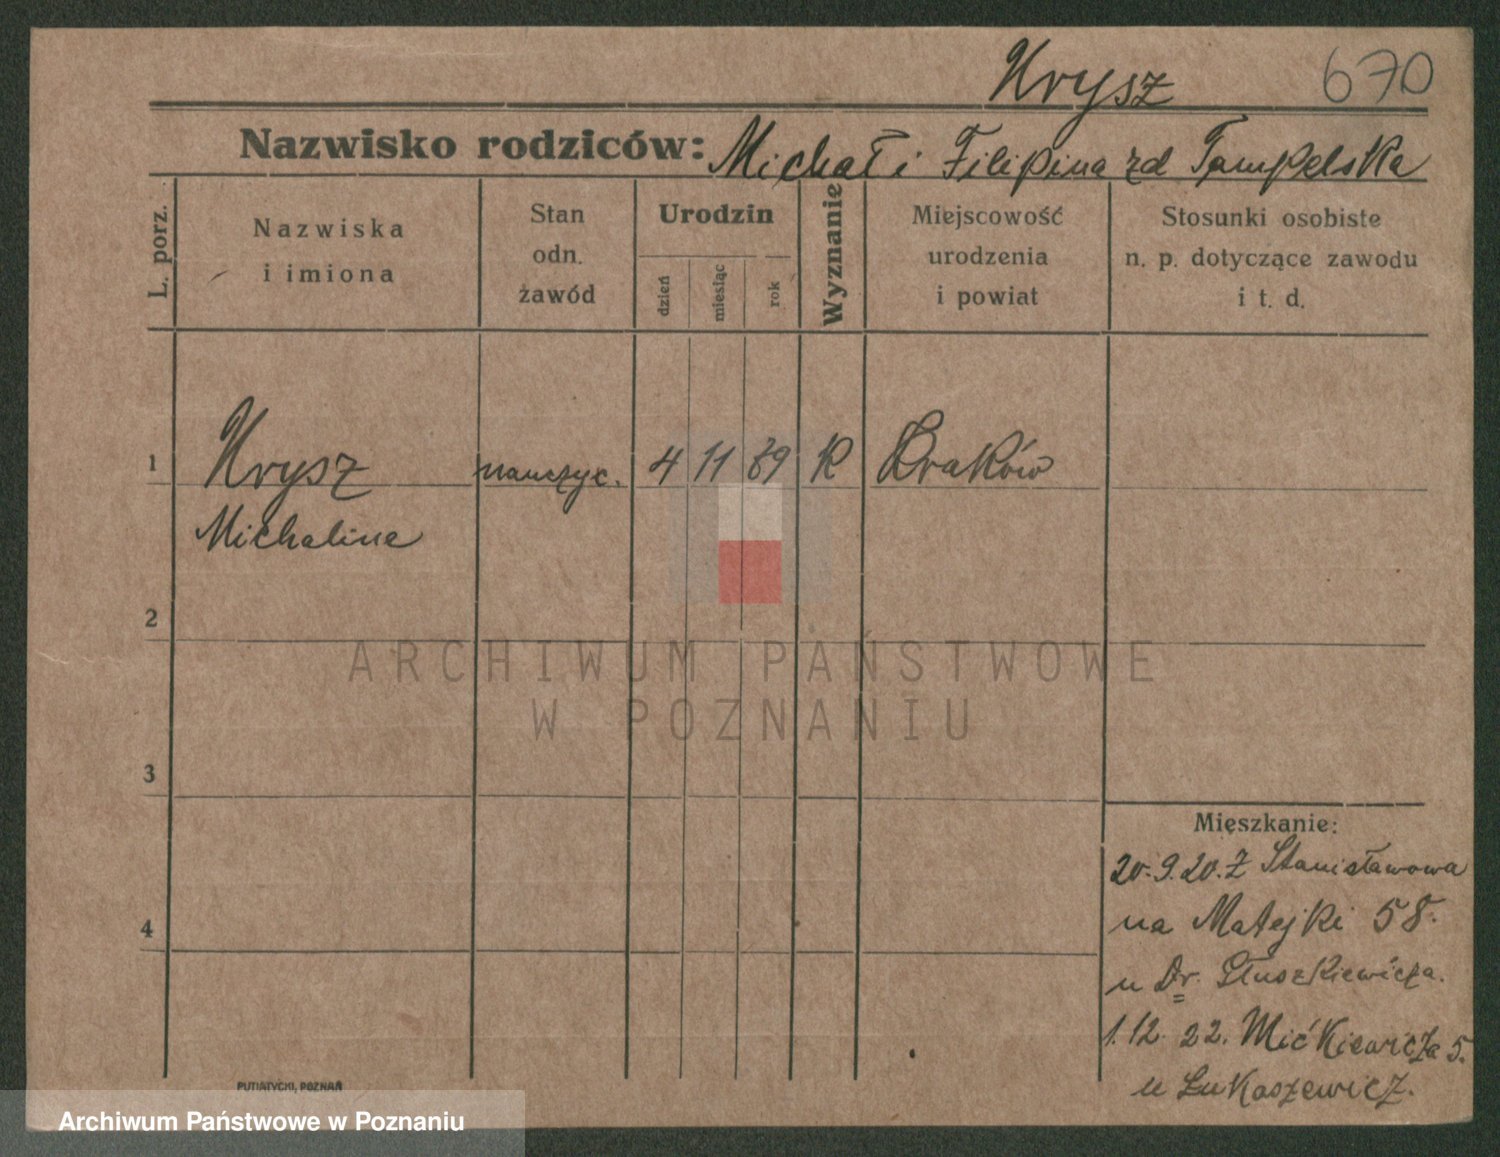 Krysz 670
Nazwisko rodziców: Michał i Filipina zd Tampelska
L. porz.
Nazwiska
i imiona
Stan
odn.
zawód
Urodzin
dzień
miesiąc
rok
Wyznanie
Miejscowość
urodzenia
i powiat
Stosunki osobiste
n. p. dotyczące zawodu
i t. d.
1 Krysz nauczyc. 4 11 89 K Kraków
Michalina
2
ARCHIWUM PAŃSTWOWE
W POZNANIU
3
Mieszkanie:
20.9.20. Z Stanisławowa
4 na Matejki 58.
u Dr. Słuszkiewicza.
1.12.22. Mickiewicza 5.
u Łukaszewicz.
PUTIATYCKI, POZNAŃ
Archiwum Państwowe w Poznaniu